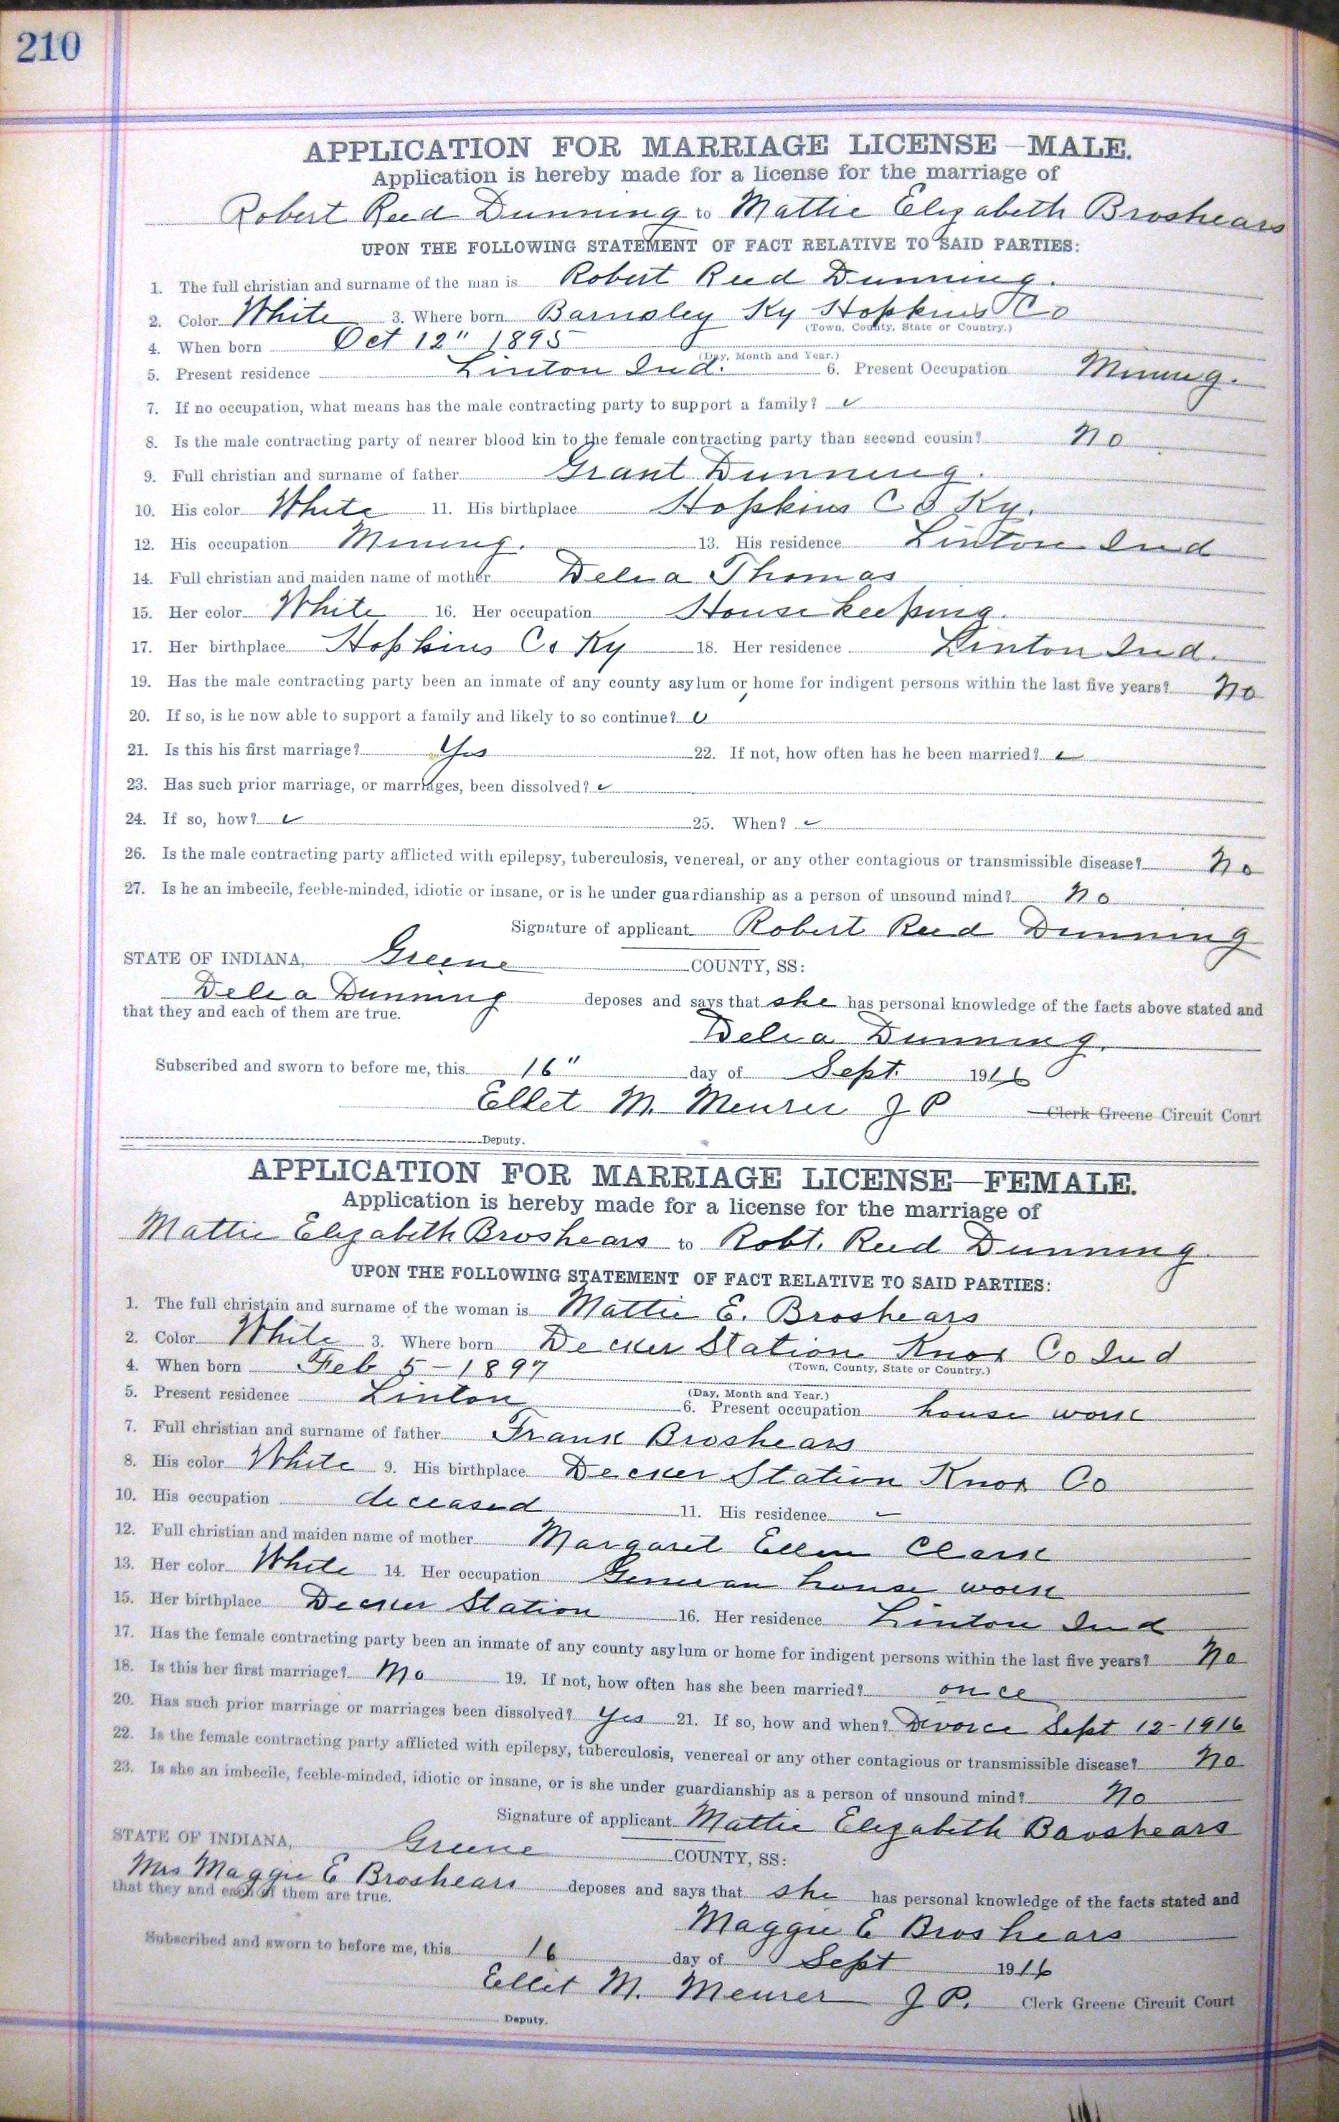 210
APPLICATION FOR MARRIAGE LICENSE—MALE.
Application is hereby made for a license for the marriage of
Robert Reed Dunning to Mattie Elizabeth Broshears
UPON THE FOLLOWING STATEMENT OF FACT RELATIVE TO SAID PARTIES:
1. The full christian and surname of the man is Robert Reed Dunning.
2. Color White 3. Where born Barnsley Ky Hopkins Co
(Town, County, State or Country.)
4. When born Oct 12" 1895
(Day, Month and Year.)
5. Present residence Linton Ind. 6. Present Occupation Mining.
7. If no occupation, what means has the male contracting party to support a family? ✓
8. Is the male contracting party of nearer blood kin to the female contracting party than second cousin? No
9. Full christian and surname of father Grant Dunning.
10. His color White 11. His birthplace Hopkins Co Ky.
12. His occupation Mining. 13. His residence Linton Ind
14. Full christian and maiden name of mother Delia Thomas
15. Her color White 16. Her occupation House keeping.
17. Her birthplace Hopkins Co Ky 18. Her residence Linton Ind.
19. Has the male contracting party been an inmate of any county asylum or home for indigent persons within the last five years? No
20. If so, is he now able to support a family and likely to so continue? ✓
21. Is this his first marriage? Yes 22. If not, how often has he been married? ✓
23. Has such prior marriage, or marriages, been dissolved? ✓
24. If so, how? ✓ 25. When? ✓
26. Is the male contracting party afflicted with epilepsy, tuberculosis, venereal, or any other contagious or transmissible disease? No
27. Is he an imbecile, feeble-minded, idiotic or insane, or is he under guardianship as a person of unsound mind? No
Signature of applicant Robert Reed Dunning
STATE OF INDIANA, Greene COUNTY, SS:
Delia Dunning deposes and says that she has personal knowledge of the facts above stated and
that they and each of them are true.
Delia Dunning.
Subscribed and sworn to before me, this 16" day of Sept. 1916
Ellet M. Meurer J P Clerk Greene Circuit Court
Deputy.
APPLICATION FOR MARRIAGE LICENSE—FEMALE.
Application is hereby made for a license for the marriage of
Mattie Elizabeth Broshears to Robt. Reed Dunning
UPON THE FOLLOWING STATEMENT OF FACT RELATIVE TO SAID PARTIES:
1. The full christain and surname of the woman is Mattie E. Broshears
2. Color White 3. Where born Decker Station Knox Co Ind
(Town, County, State or Country.)
4. When born Feb 5-1897
(Day, Month and Year.)
5. Present residence Linton 6. Present occupation house work
7. Full christian and surname of father Frank Broshears
8. His color White 9. His birthplace Decker Station Knox Co
10. His occupation deceased 11. His residence ✓
12. Full christian and maiden name of mother Margaret Ellen Clark
13. Her color White 14. Her occupation General house work
15. Her birthplace Decker Station 16. Her residence Linton Ind
17. Has the female contracting party been an inmate of any county asylum or home for indigent persons within the last five years? No
18. Is this her first marriage? No 19. If not, how often has she been married? once
20. Has such prior marriage or marriages been dissolved? Yes 21. If so, how and when? Divorce Sept 12-1916
22. Is the female contracting party afflicted with epilepsy, tuberculosis, venereal or any other contagious or transmissible disease? No
23. Is she an imbecile, feeble-minded, idiotic or insane, or is she under guardianship as a person of unsound mind? No
Signature of applicant Mattie Elizabeth Broshears
STATE OF INDIANA, Greene COUNTY, SS:
Mrs Maggie E Broshears deposes and says that she has personal knowledge of the facts stated and
that they and each of them are true.
Maggie E Broshears
Subscribed and sworn to before me, this 16 day of Sept 1916
Ellet M. Meurer J P. Clerk Greene Circuit Court
Deputy.